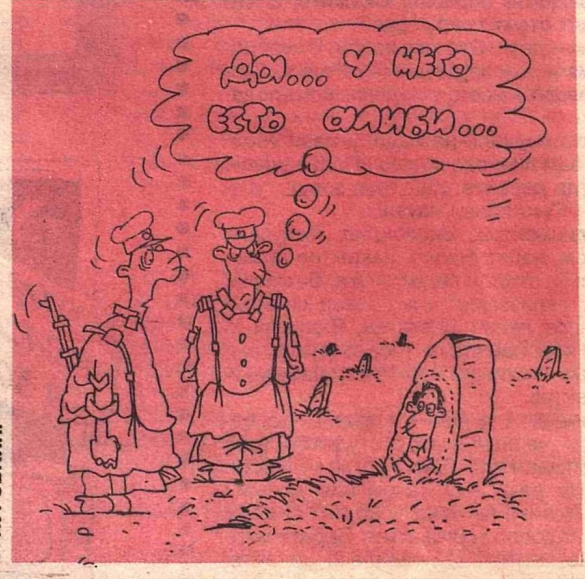 ДА... У НЕГО
ЕСТЬ АЛИБИ...